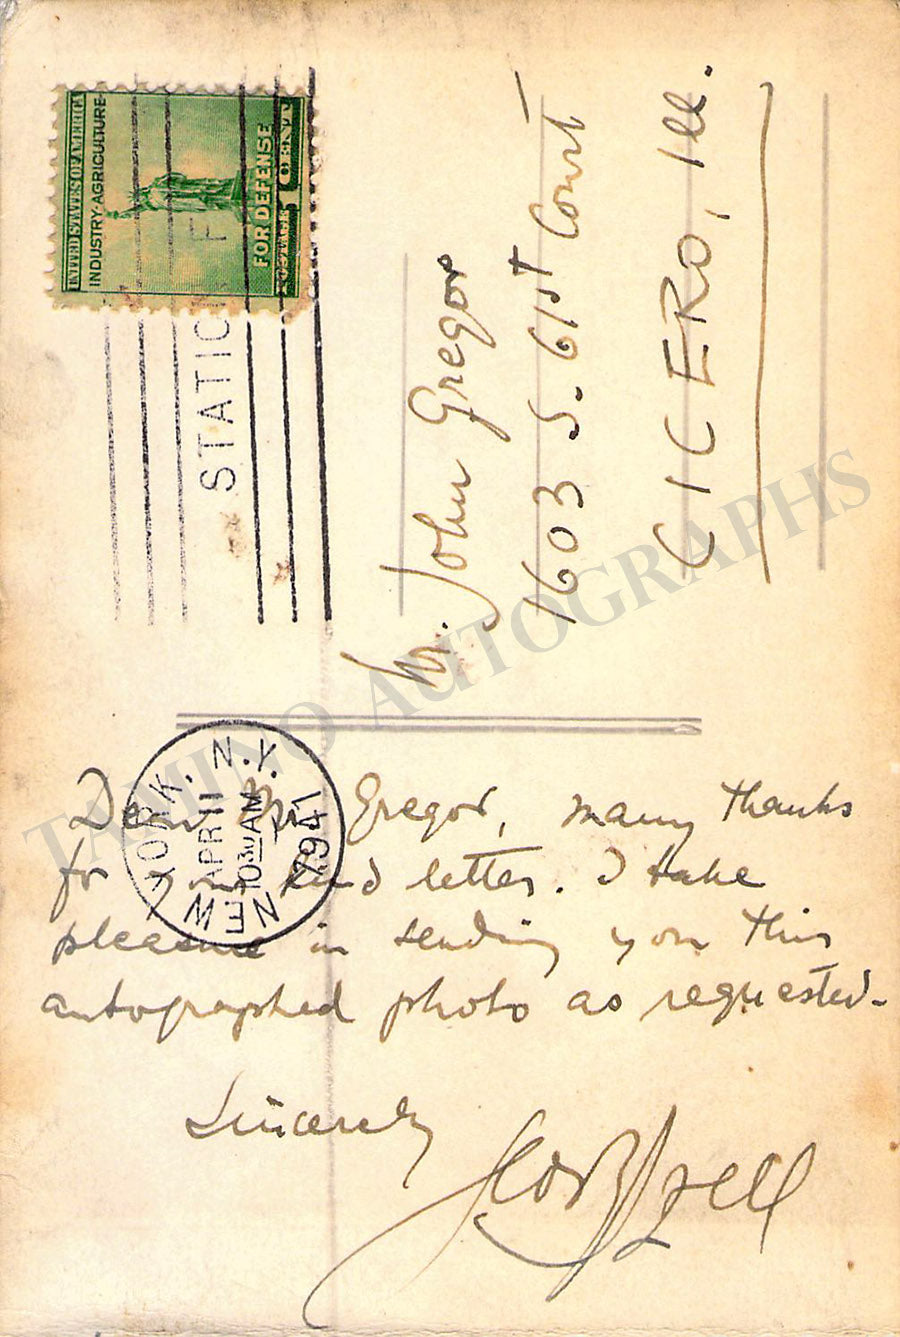 UNITED STATES OF AMERICA
INDUSTRY-AGRICULTURE-
FOR DEFENSE
POSTAGE 1 CENT
STATION F
Mr. John Gregor
1603 S. 61st Court
CICERO, Ill.
NEW YORK, N.Y.
APR 11
10 30 AM
1941
Dear Mr. Gregor, many thanks
for your kind letter. I take
pleasure in sending you this
autographed photo as requested-
Sincerely
TAMINO AUTOGRAPHS